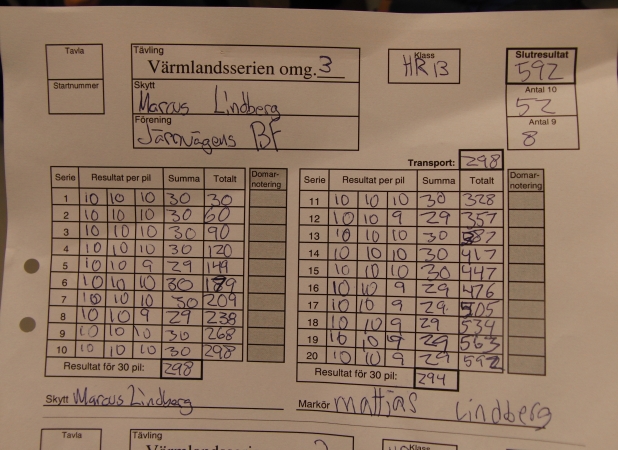 Tavla
Startnummer
Tävling
Värmlandsserien omg. 3
Skytt
Marcus Lindberg
Förening
Järnvägens BF
Klass
HR 13
Slutresultat
592
Antal 10
52
Antal 9
8
Transport: 298
Serie Resultat per pil Summa Totalt Domar-notering
1 10 10 10 30 30
2 10 10 10 30 60
3 10 10 10 30 90
4 10 10 10 30 120
5 10 10 9 29 149
6 10 10 10 30 179
7 10 10 10 30 209
8 10 10 9 29 238
9 10 10 10 30 268
10 10 10 10 30 298
Resultat för 30 pil: 298
Serie Resultat per pil Summa Totalt Domar-notering
11 10 10 10 30 328
12 10 10 9 29 357
13 10 10 10 30 387
14 10 10 10 30 417
15 10 10 10 30 447
16 10 10 9 29 476
17 10 10 9 29. 505
18 10 10 9 29 534
19 10 10 9 29 563
20 10 10 9 29 592
Resultat för 30 pil: 294
Skytt Marcus Lindberg
Markör mattias Lindberg
Tavla
Tävling
Klass